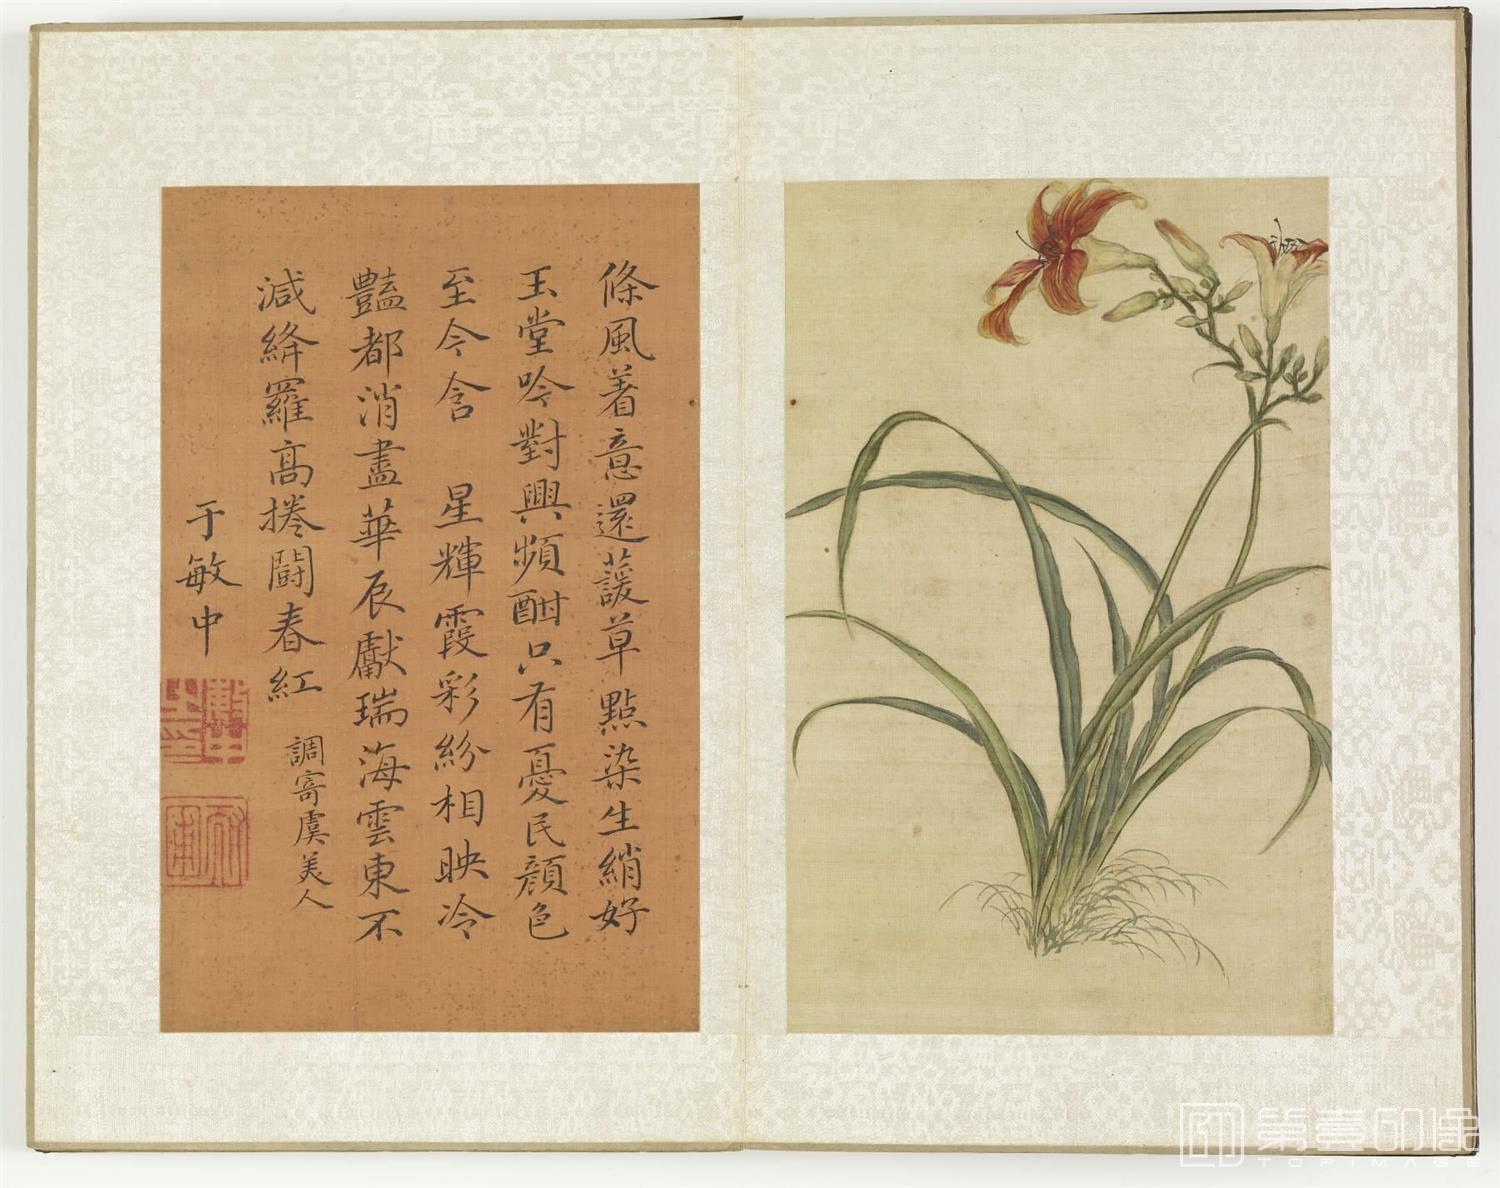 條風着意還諼草點染生綃好
玉堂吟對興頻酣只有憂民顏色
至今含　星輝霞彩紛相映冷
豔都消盡華辰獻瑞海雲東不
減絳羅高捲鬪春紅　調寄虞美人
于敏中
第壹印象
TOPIMAGE